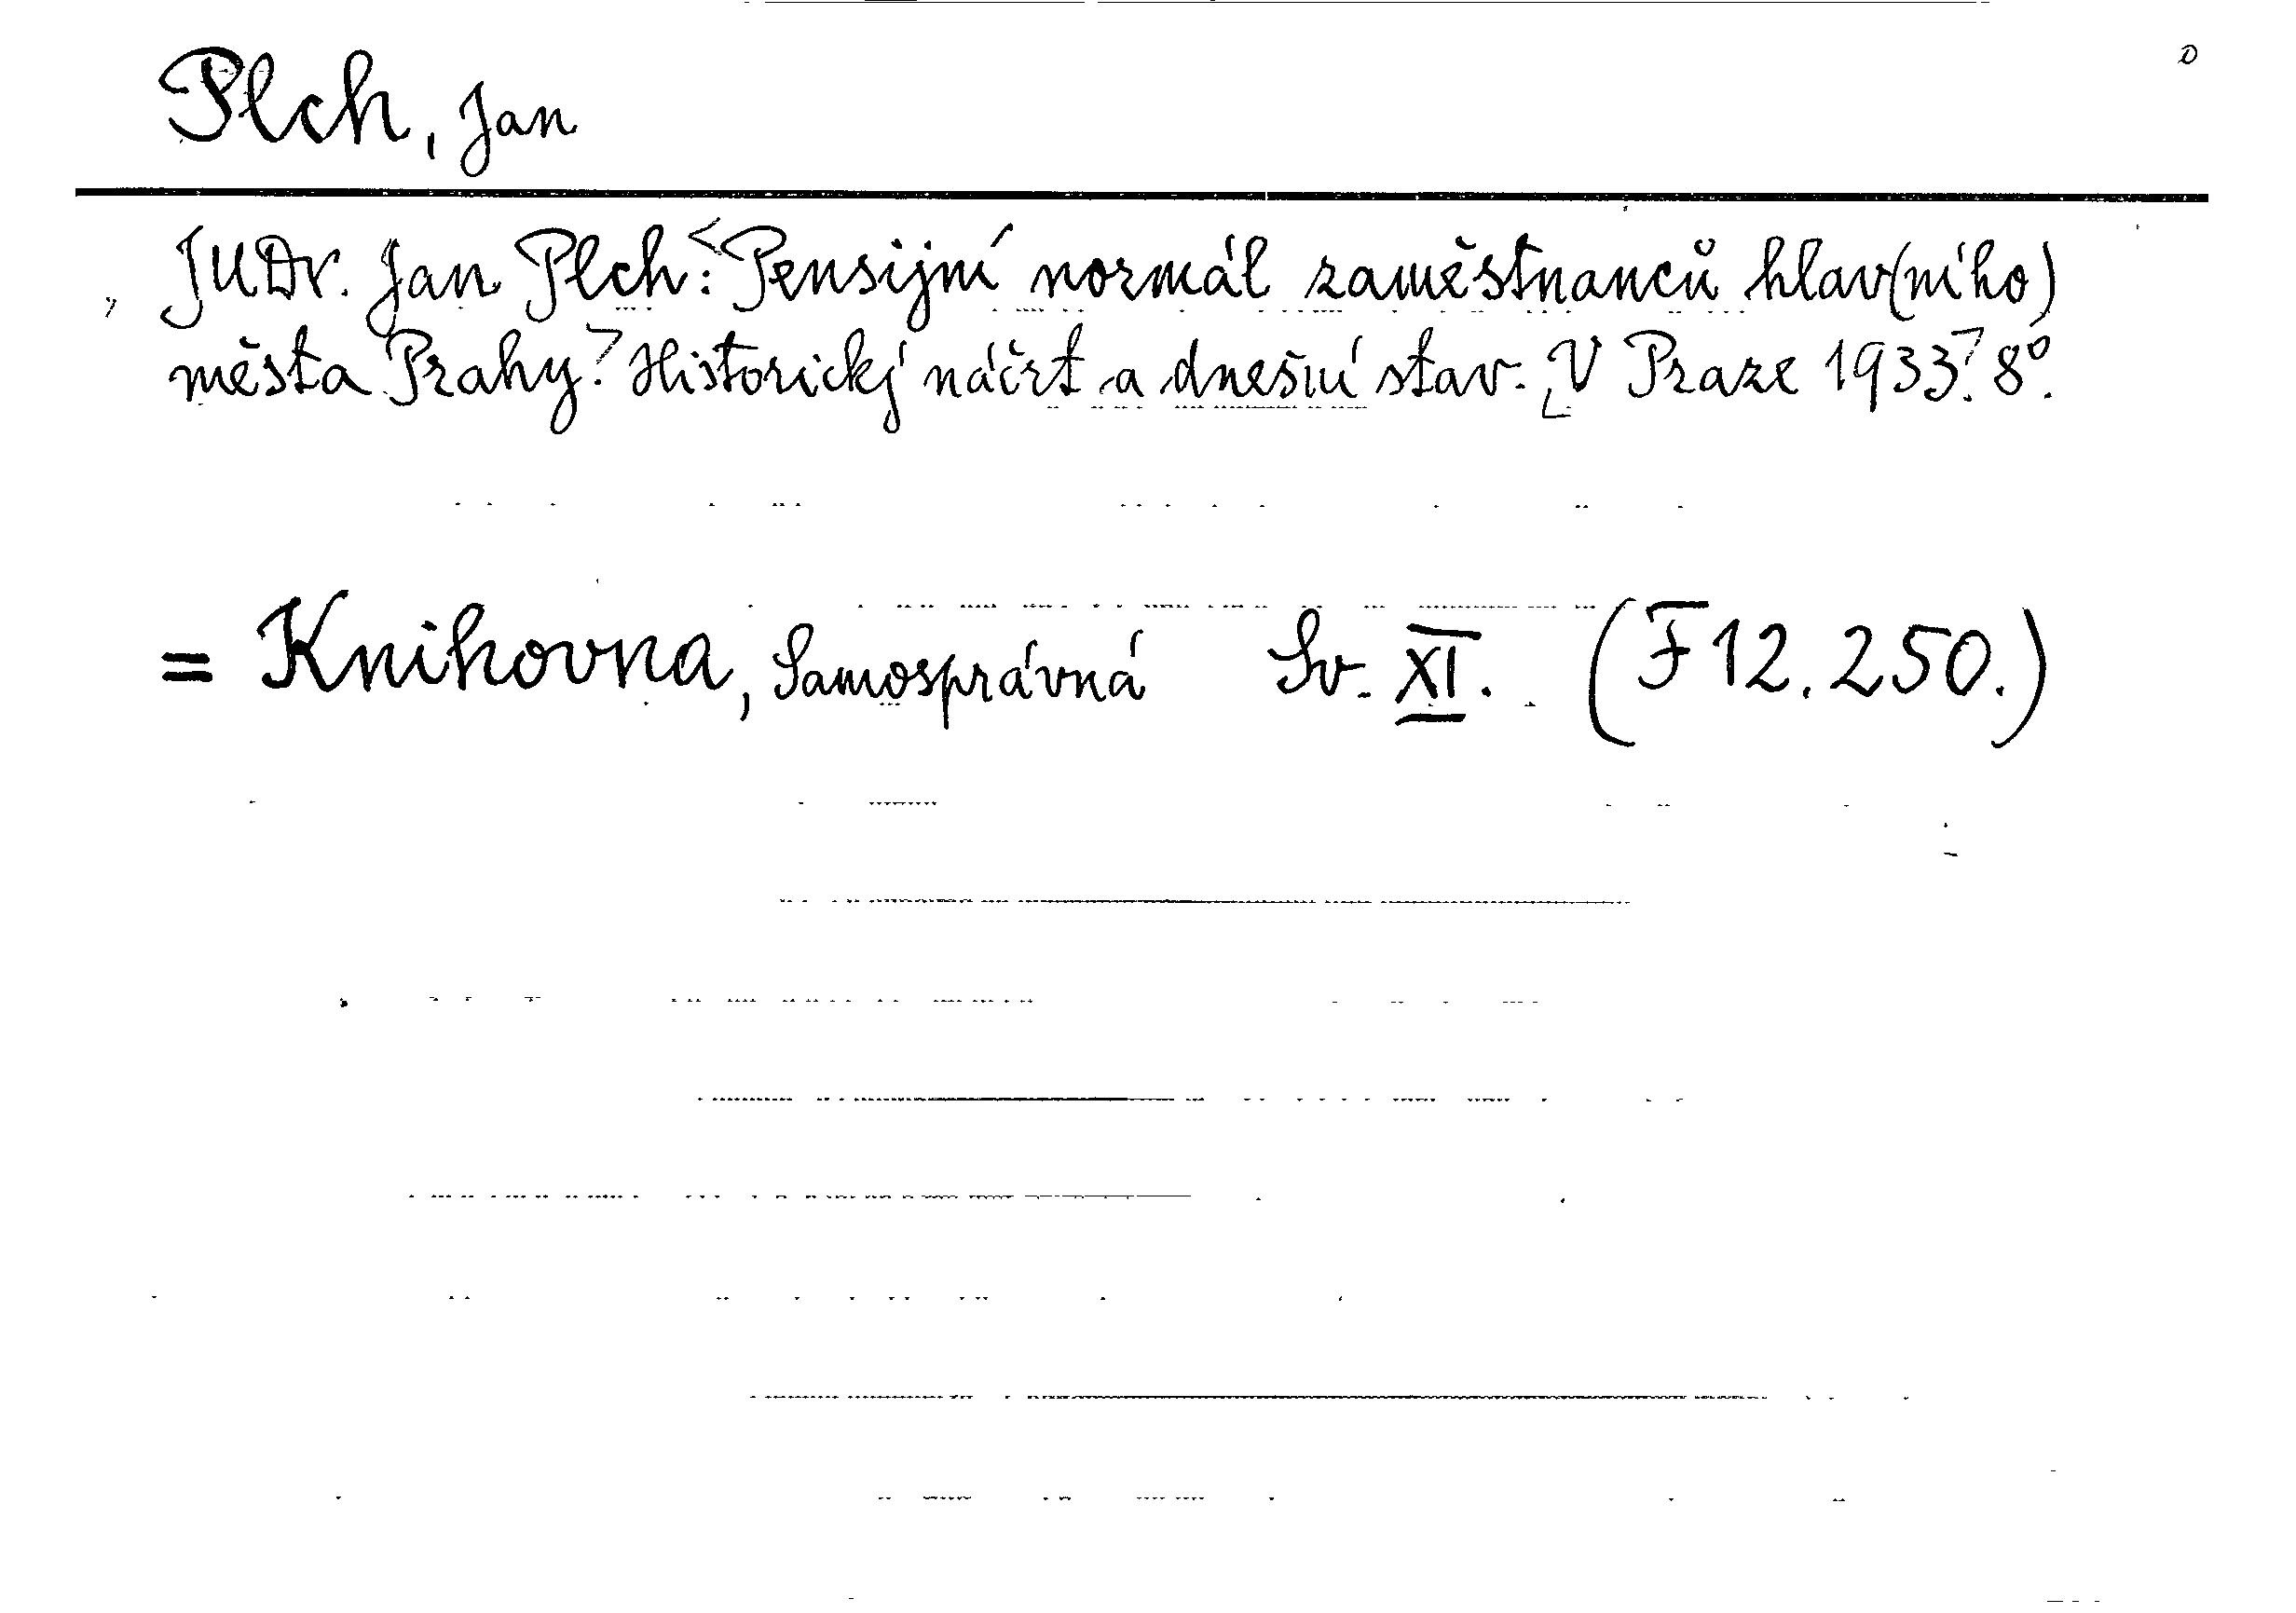 Plch, Jan
JUDr. Jan Plch: <Pensijní normál zaměstnanců hlav(ního)
města Prahy>. Historický náčrt a dnešní stav. [V Praze 1933]. 8°.
= Knihovna, Samosprávná Sv. XI. (F 12.250.)